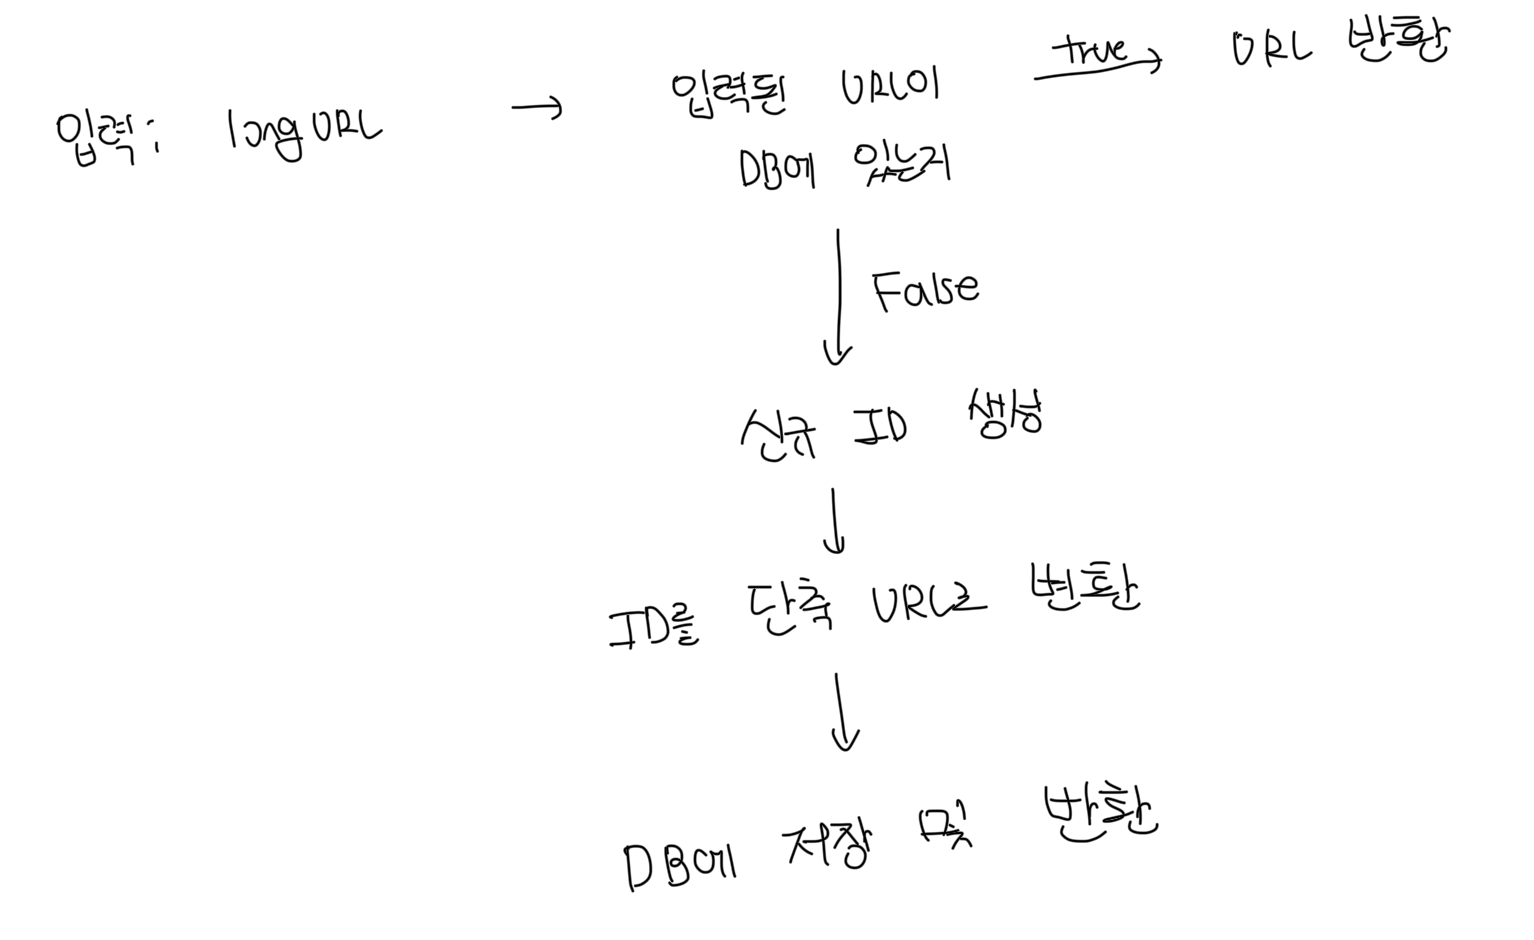 입력: long URL
입력된 URL이
DB에 있는지
true
URL 반환
False
신규 ID 생성
ID를 단축 URL로 변환
DB에 저장 및 반환